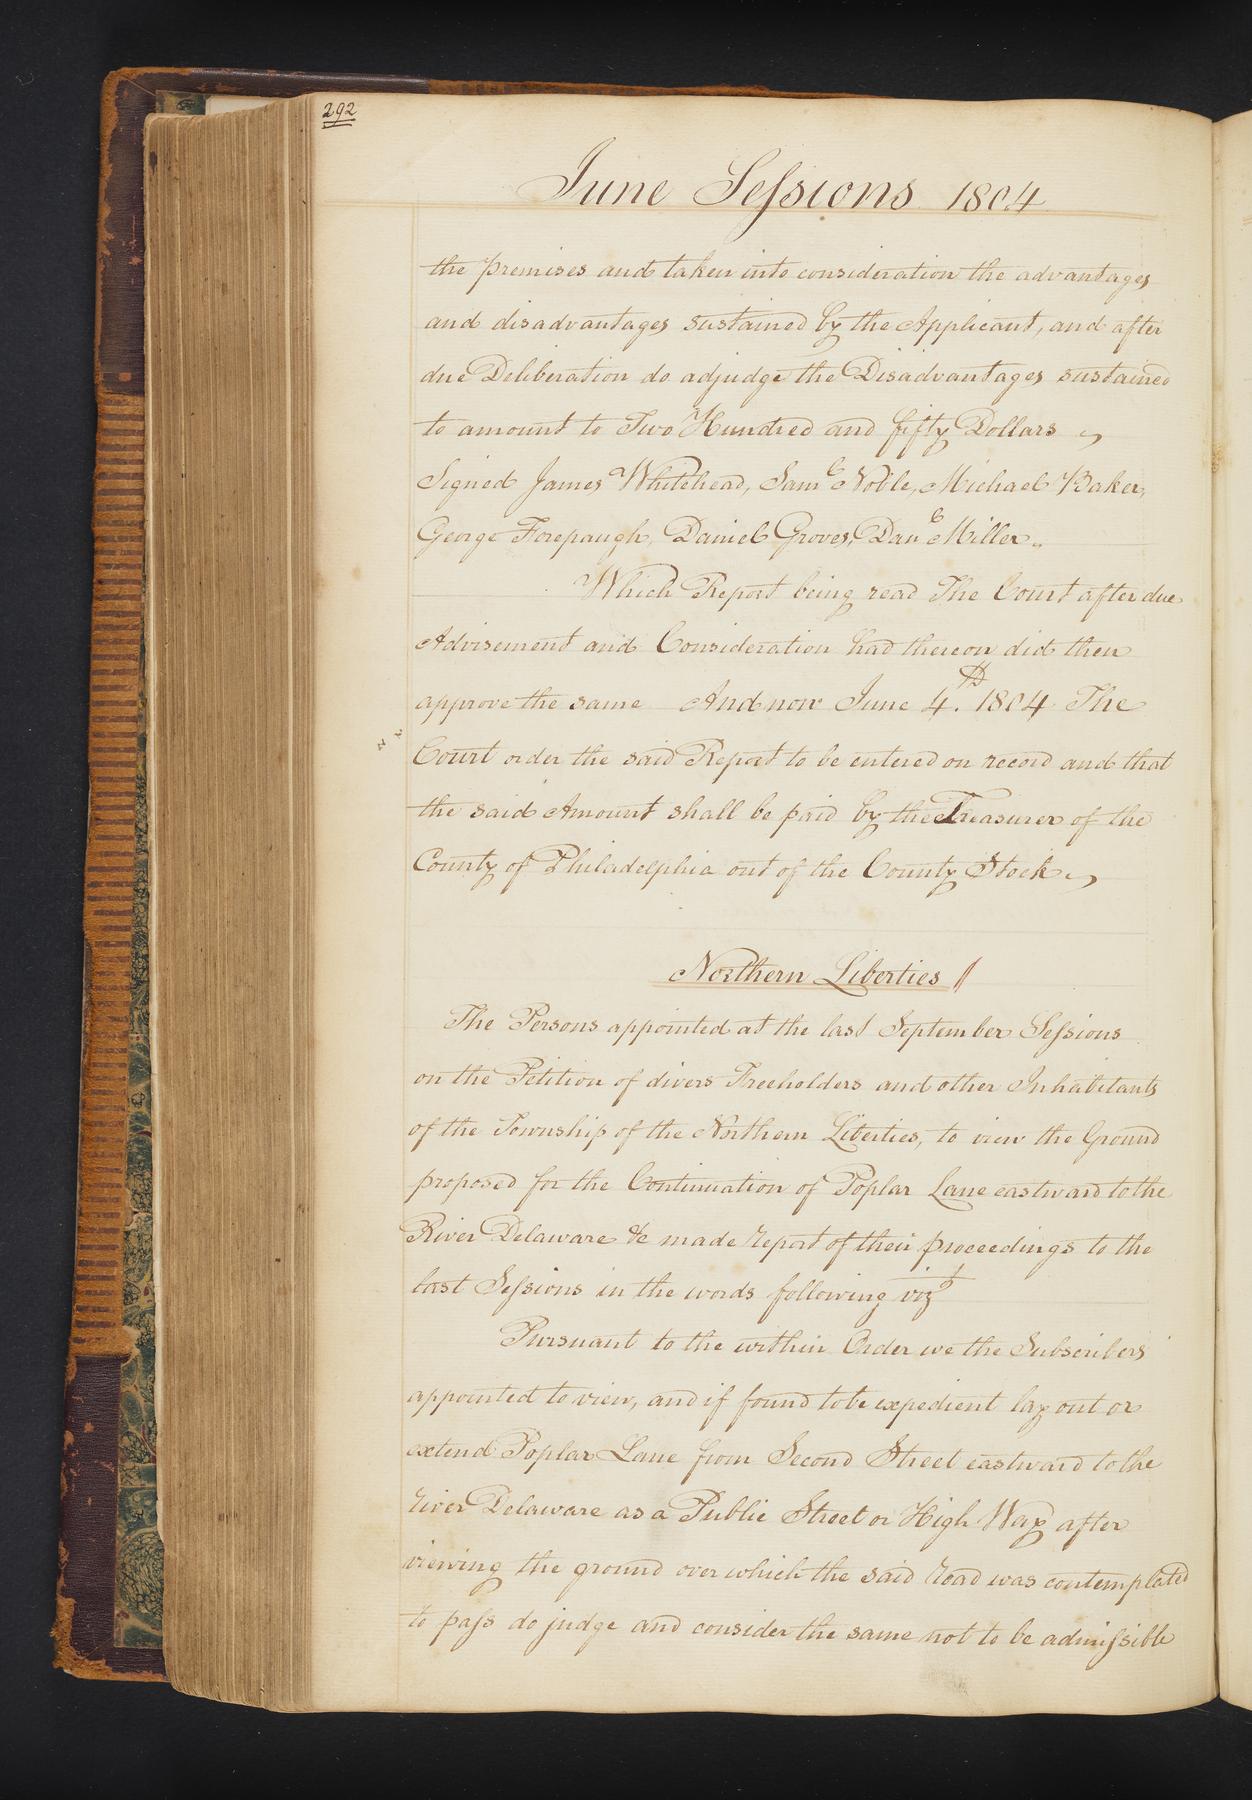 292
June Seſsions 1804
the premises and taken into consideration the advantages
and disadvantages sustained by the Applicant, and after
due Deliberation do adjudge the Disadvantages sustained
to amount to Two Hundred and fifty Dollars
Signed James Whitehead, Saml Noble, Michael Baker,
George Forepaugh, Daniel Groves, Danl Miller.
Which Report being read The Court after due
Advisement and Consideration had thereon did then
approve the same And now June 4th. 1804 The
Court order the said Report to be entered on record and that
the said Amount shall be paid by the Treasurer of the
County of Philadelphia out of the County Stock
Northern Liberties //
The Persons appointed at the last September Seſsions
on the Petition of divers Freeholders and other Inhabitants
of the Township of the Northern Liberties, to view the Ground
proposed for the Continuation of Poplar Lane eastward to the
River Delaware &c made report of their proceedings to the
last Seſsions in the words following vizt
Pursuant to the within Order we the Subscribers
appointed to view, and if found to be expedient lay out or
extend Poplar Lane from Second Street eastward to the
river Delaware as a Public Street or High Way after
viewing the ground over which the said road was contemplated
to paſs do judge and consider the same not to be admiſsible